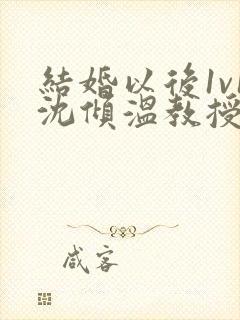 結婚以後1v1
沈傾溫教授
咸客